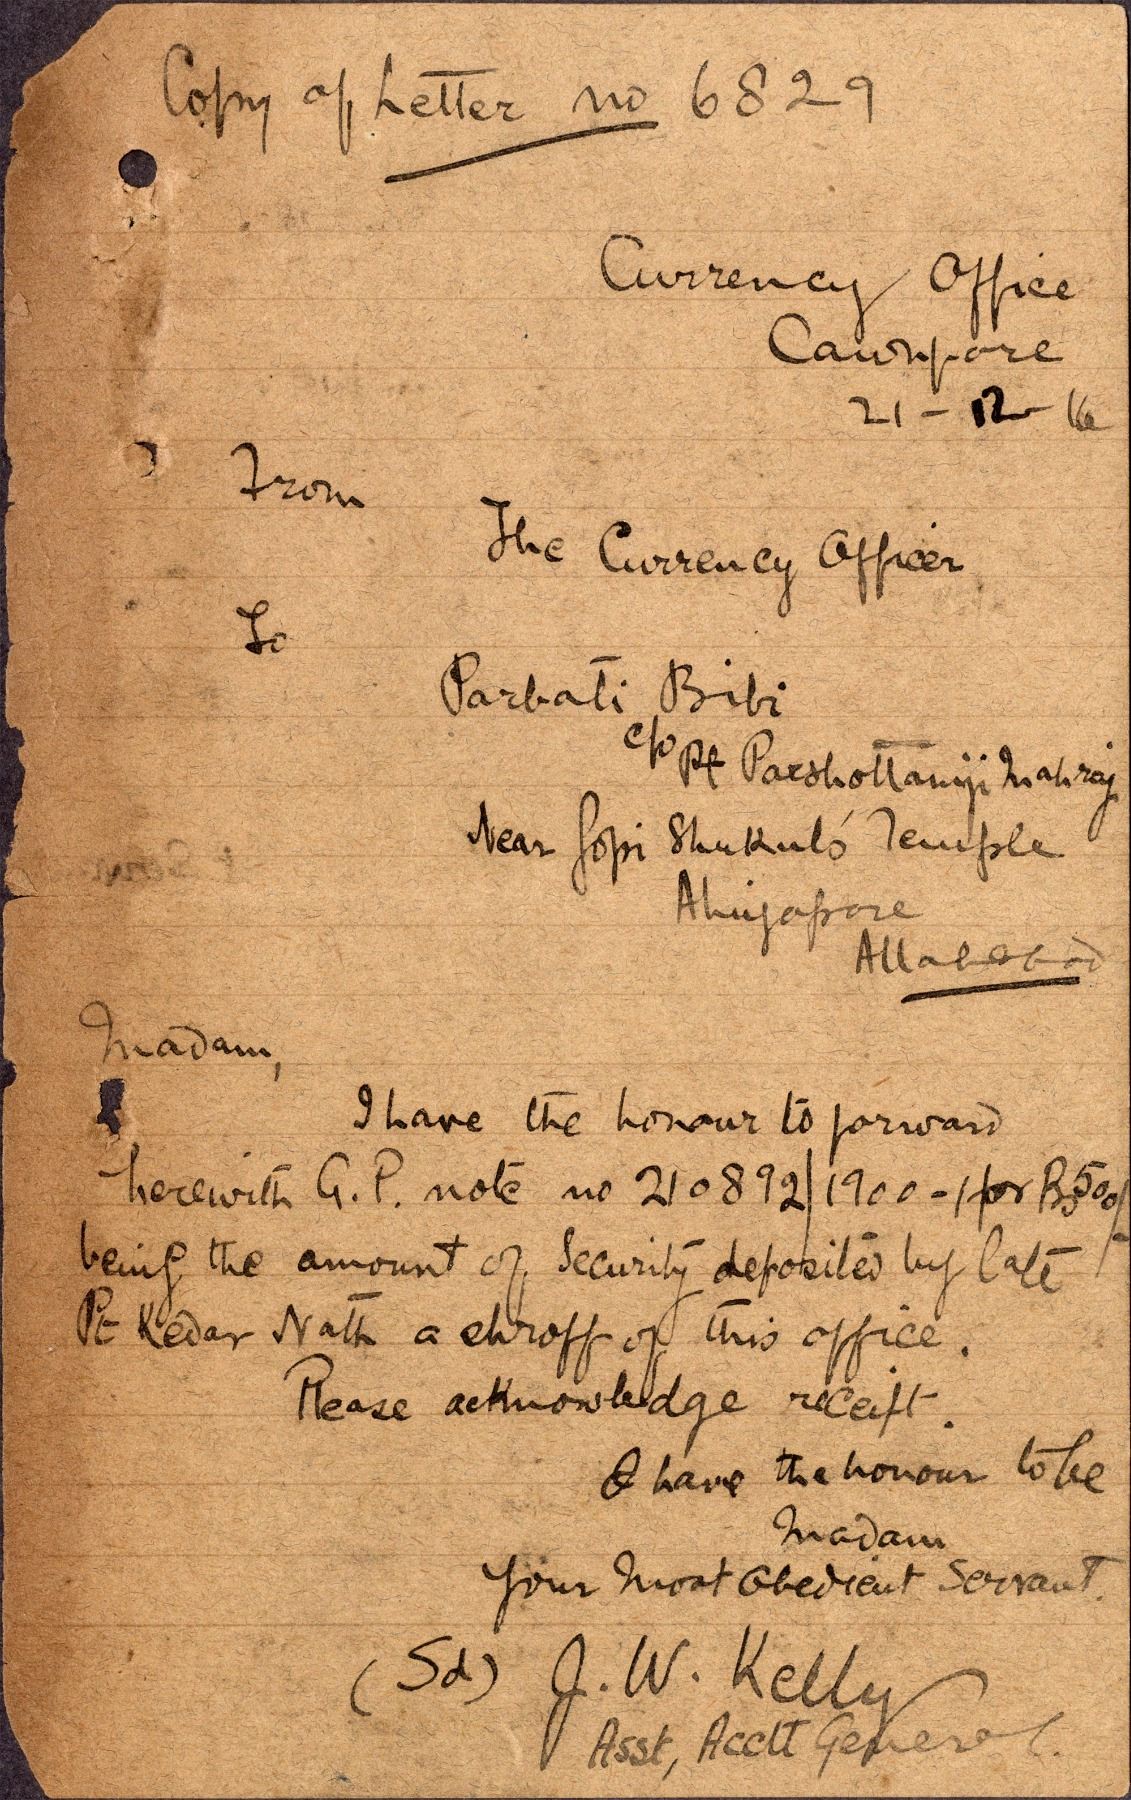 Copy of Letter no 6829
Currency Office
Cawnpore
21-12-16
From
The Currency Officer
To
Parbati Bibi
c/o Pt Parshottamji Mahraj
Near Gopi Shukul's Temple
Ahiyapore
Allahabad
Madam,
I have the honour to forward
herewith G.P. note no 210892/1900-1 for Rs 500/-
being the amount of Security deposited by late
Pt Kedar Nath a shroff of this office.
Please acknowledge receipt.
I have the honour to be
Madam
Your Most Obedient Servant.
(Sd) J. W. Kelly
Asst, Acctt General.